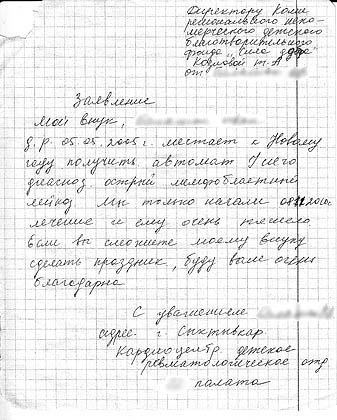 Директору Коми
регионального неко-
мерческого детского
благотворительного
фонда "Сила добра"
Козловой т. А
от
Заявление
Мой внук,
д. р. 05.05.2005г. мечтает к Новому
году получить автомат У него
диагноз острый лимфобластный
лейкоз. Мы только начали
лечение и ему очень тяжело.
Если вы сможете моему внуку
сделать праздник, буду вам очень
благодарна
С уважением
адрес г. Сыктывкар
Кардиоцентр. детское
ревматологическое отд.
палата